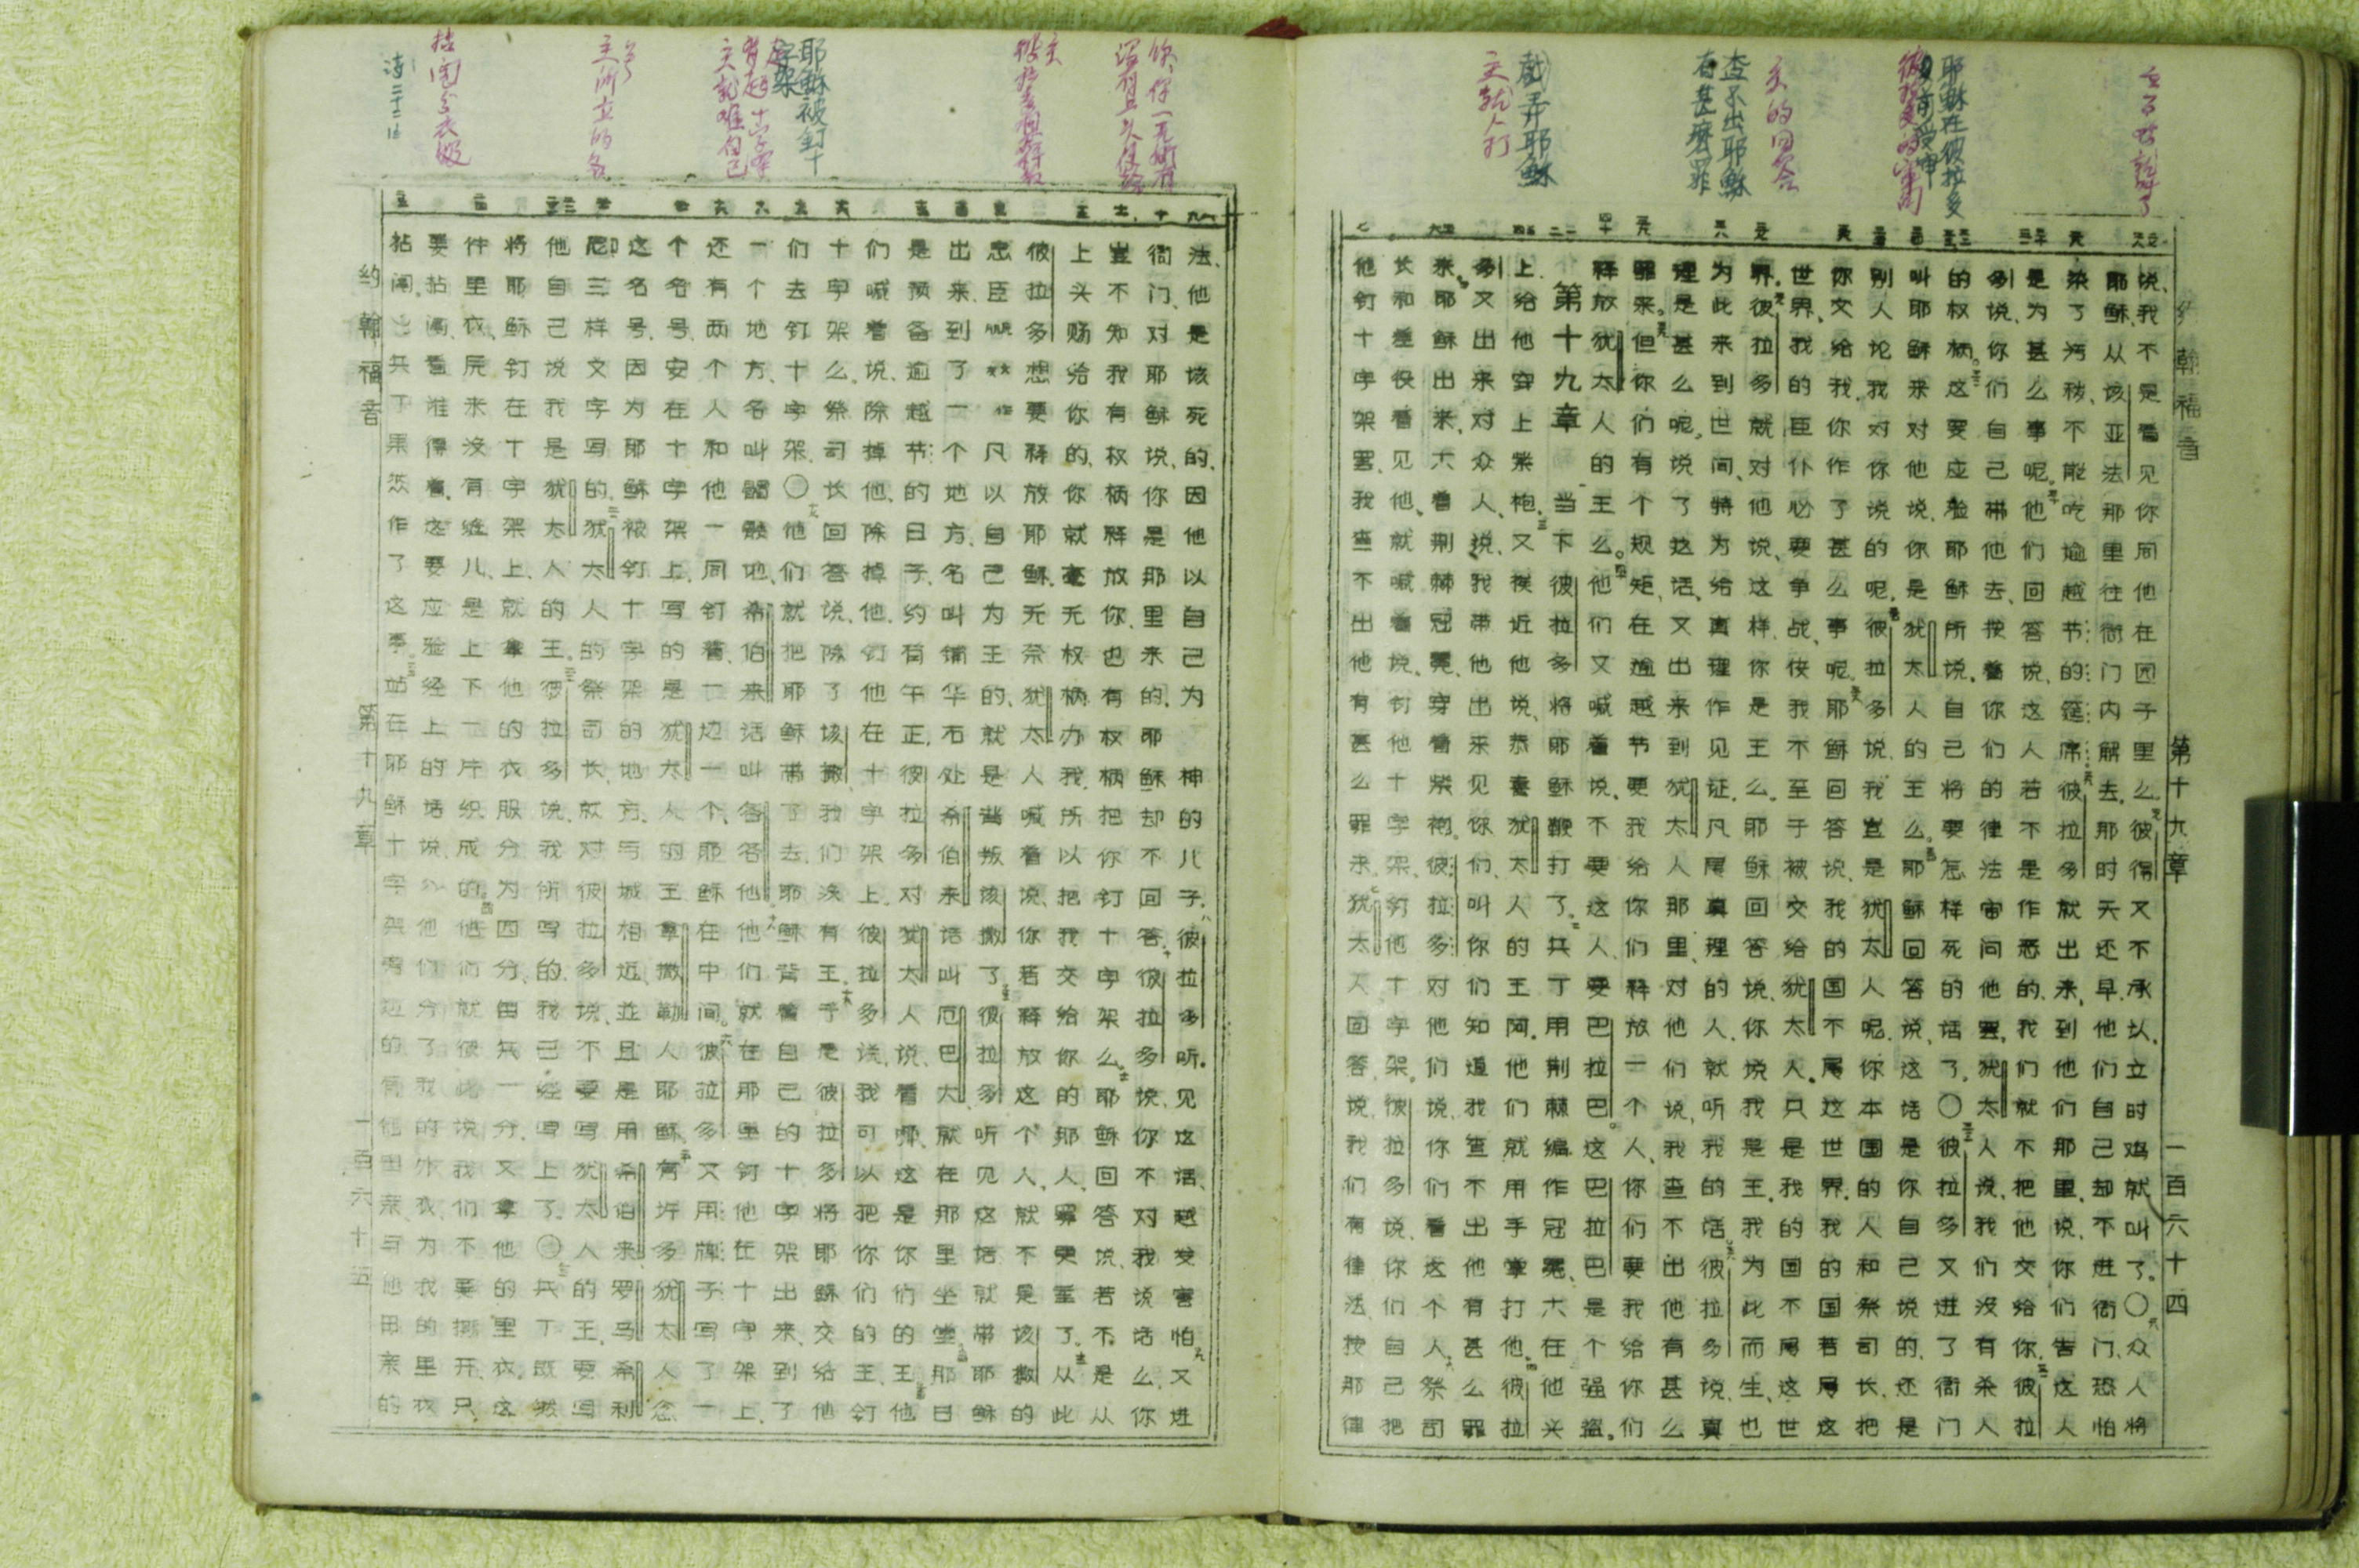 约翰福音 第十九章 一百六十四
耶稣在彼拉多
前受审
主的回答
查不出耶稣
有甚麽罪
戏弄耶稣
主就人打
说、我不是看见你同他在园子里么。彼得又不承认、立时鸡就叫了。〇众人将
耶稣、从该亚法那里往衙门内解去、那时天还早、他们自己却不进衙门、恐怕
染了污秽、不能吃逾越节的筵席。彼拉多就出来、到他们那里、说、你们告这人
是为甚么事呢。他们回答说、这人若不是作恶的、我们就不把他交给你。彼拉
多说、你们自己带他去、按着你们的律法审问他罢。犹太人说、我们没有杀人
的权柄。这要应验耶稣所说、自己将要怎样死的话了。〇彼拉多又进了衙门
叫耶稣来、对他说、你是犹太人的王么。耶稣回答说、这话是你自己说的、还是
别人论我对你说的呢。彼拉多说、我岂是犹太人呢、你本国的人和祭司长、把
你交给我、你作了甚么事呢。耶稣回答说、我的国不属这世界.我的国若属这
世界、我的臣仆必要争战、使我不至于被交给犹太人.只是我的国不属这世
界。彼拉多就对他说、这样、你是王么。耶稣回答说、你说我是王、我为此而生、也
为此来到世间、特为给真理作见证.凡属真理的人、就听我的话。彼拉多说、真
理是甚么呢、说了这话、又出来到犹太人那里、对他们说、我查不出他有甚么
罪来。但你们有个规矩、在逾越节要我给你们释放一个人、你们要我给你们
释放犹太人的王么。他们又喊着说、不要这人、要巴拉巴。这巴拉巴是个强盗。
第十九章 当下彼拉多将耶稣鞭打了。兵丁用荆棘编作冠冕、六在他头
上.给他穿上紫袍.又挨近他说、恭喜犹太人的王阿.他们就用手掌打他。彼拉
多又出来对众人说、我带他出来见你们、叫你们知道我查不出他有甚么罪
来。耶稣出来、六着荆棘冠冕、穿着紫袍。彼拉多对他们说、你们看这个人。祭司
长和差役看见他、就喊着说、钉他十字架、钉他十字架。彼拉多说、你们自己把
他钉十字架罢、我查不出他有甚么罪来。犹太人回答说、我们有律法、按那律
耶稣被钉十
字架
主所立的名
拈阄分衣服
法、他是该死的、因他以自己为 神的儿子.彼拉多听见这话、越发害怕。又进
衙门、对耶稣说、你是那里来的.耶稣却不回答。彼拉多说、你不对我说话么、你
岂不知我有权柄释放你、也有权柄把你钉十字架么。耶稣回答说、若不是从
上头赐给你的、你就毫无权柄办我.所以把我交给你的那人、罪更重了。从此
彼拉多想要释放耶稣.无奈犹太人喊着说、你若释放这个人、就不是该撒的
忠臣 凡以自己为王的、就是背叛该撒了。彼拉多听见这话、就带耶稣
出来、到了一个地方、名叫铺华石处、希伯来话叫厄巴大、就在那里坐堂。那日
是预备逾越节的日子、约有午正.彼拉多对犹太人说、看哪、这是你们的王。他
们喊着说、除掉他、除掉他、钉他在十字架上.彼拉多说、我可以把你们的王钉
十字架么、祭司长回答说、除了该撒、我们没有王。于是彼拉多将耶稣交给他
们去钉十字架。〇他们就把耶稣带了去.耶稣背着自己的十字架出来、到了
一个地方、名叫髑髅地、希伯来话叫各各他。他们就在那里钉他在十字架上.
还有两个人和他一同钉着、一边一个、耶稣在中间。彼拉多又用牌子写了一
个名号、安在十字架上.写的是犹太人的王拿撒勒人耶稣。有许多犹太人念
这名号、因为耶稣被钉十字架的地方、与城相近、並且是用希伯来罗马希利
尼三样文字写的。犹太人的祭司长、就对彼拉多说、不要写犹太人的王、要写
他自己说我是犹太人的王。彼拉多说、我所写的、我已经写上了。〇兵丁既然
将耶稣钉在十字架上、就拿他的衣服分为四分、每兵一分.又拿他的里衣.这
件里衣、原来没有缝儿、是上下一片织成的。他们就彼此说、我们不要撕开、只
要拈阄、看谁得着.这要应验经上的话说、他们分了我的外衣、为我的里衣
拈阄.兵丁果然作了这事。站在耶稣十字架旁边的、有他母亲、与他母亲的
约翰福音 第十九章 一百六十五